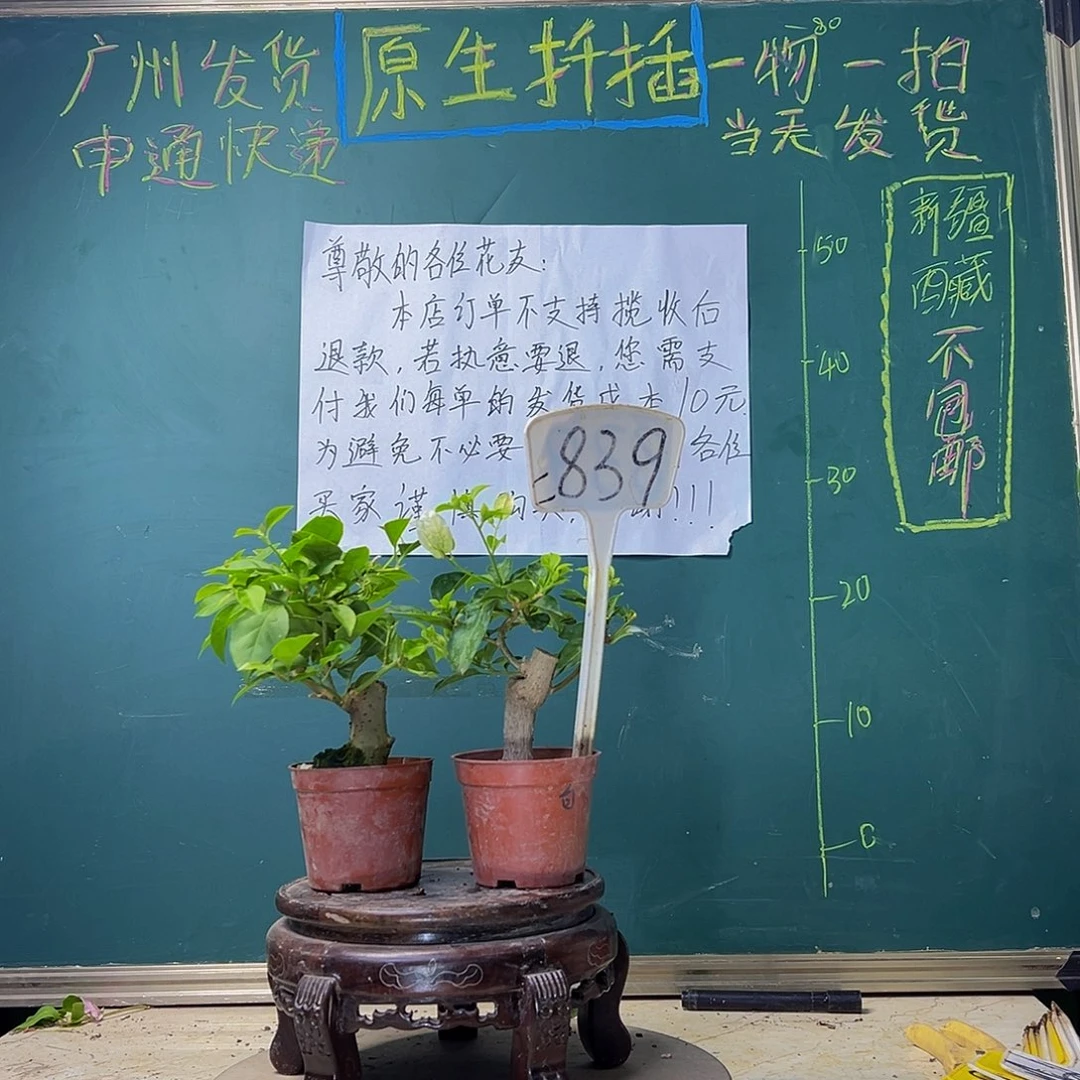 广州发货
申通快递
原生扦插
一物一拍
80
当天发货
新疆
西藏
不包邮
50
40
30
20
10
0
尊敬的各位花友:
本店订单不支持揽收后
退款,若执意要退,您需支
付我们每单的发货成本10元
为避免不必要 各位
买家谨慎购买, 谢!!!
839
白